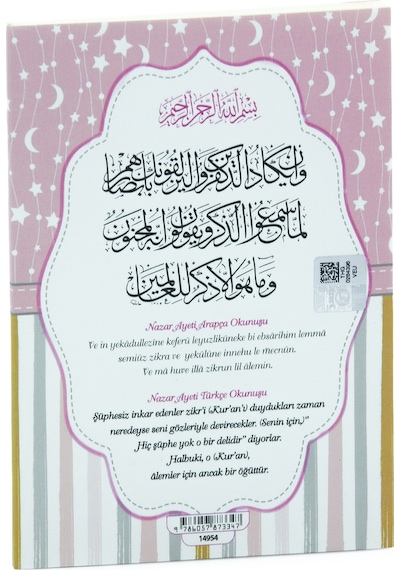 بسم الله الرحمن الرحيم
وإن يكاد الذين كفروا ليزلقونك بأبصارهم
لما سمعوا الذكر ويقولون إنه لمجنون
وما هو إلا ذكر للعالمين
Nazar Ayeti Arapça Okunuşu
Ve in yekâdullezine keferû leyuzlikûneke bi ebsârihim lemmâ
semiûz zikra ve yekûlûne innehu le mecnûn.
Ve mâ huve illâ zikrun lil âlemin.
Nazar Ayeti Türkçe Okunuşu
Şüphesiz inkar edenler zikr'i (Kur'an'ı) duydukları zaman
neredeyse seni gözleriyle devirecekler. (Senin için,)"
"Hiç şüphe yok o bir delidir" diyorlar.
Halbuki, o (Kur'an),
âlemler için ancak bir öğüttür.
THG
0094396
VEU
9 786057 873347
14954